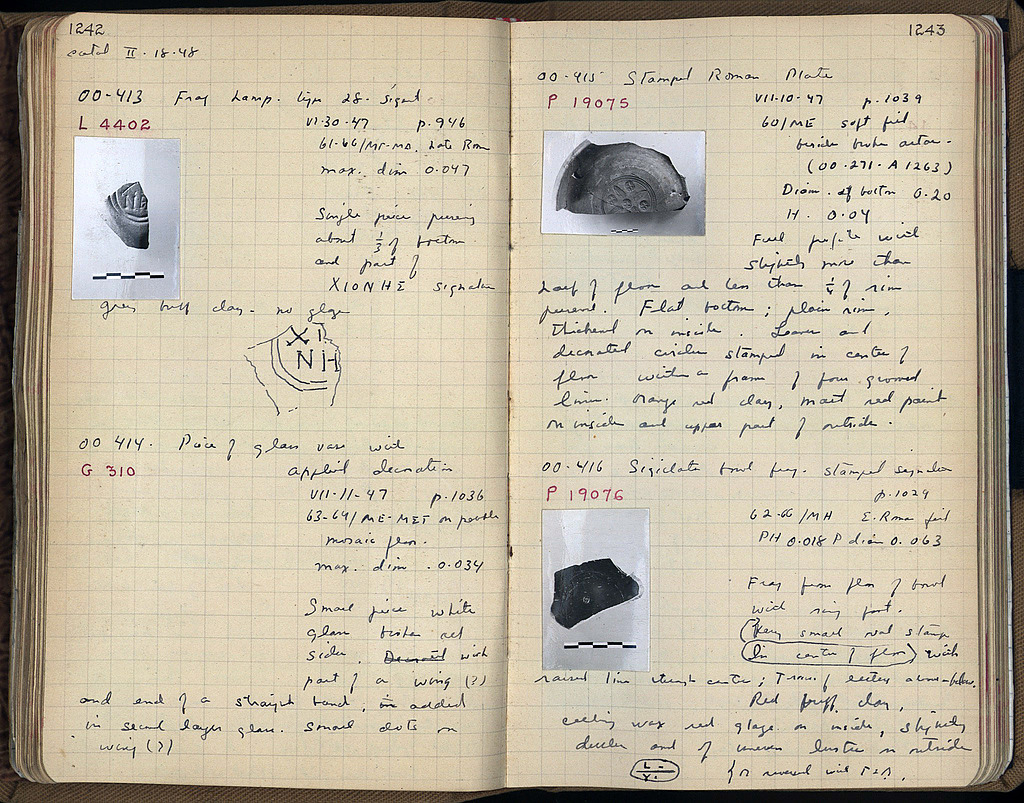 1242
catal II · 18 · 48
00-413 Frag Lamp. type 28. Signat.
L 4402
VI·30·47 p. 946
61-66/ME-MO, Late Rom
max. dim 0.047
Single piece preserving
about 1/3 of bottom
and part of
XIONHΣ signature
grey buff clay - no glaze
XI
NH
00 414. Piece of glass vase with
G 310
applied decoration
VII-11-47 p. 1036
63-64/ME-MET on possible
mosaic floor.
max. dim. 0.034
Small piece white
glass broken all
sides. Decorated with
part of a wing (?)
and end of a straight band, in added
in second layer glass. Small dots on
wing (?)
1243
00-415 Stamped Roman Plate
P 19075
VII-10-47 p. 1039
60/ME soft fill
beside broken
(00-271-A 1263)
Diam. of bottom 0.20
H. 0.04
Full profile with
slightly more than
half of floor and less than 1/4 of rim
preserved. Flat bottom; plain rim,
thickened on inside. Leaves and
decorated circles stamped in center of
floor within a frame of four grooved
lines. Orange red clay, matt red paint
on inside and upper part of outside.
00-416 Sigillata bowl frag. stamped signature
P 19076
p. 1029
62-66/MH E. Roman fill
PH 0.018 P diam 0.063
Frag from floor of bowl
with ring foot.
(Very small oval stamp
In center of floor) with
raised line through center; Traces of letters above + below.
Red buff clay,
sealing wax red glaze on inside, slightly
duller and of uneven lustre on outside
L -
Y -